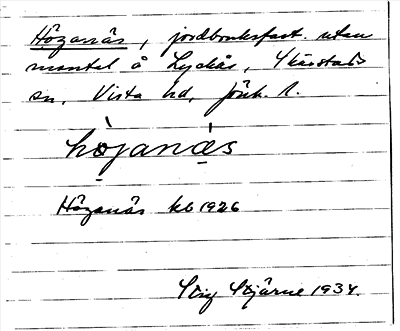 Höganäs, jordbruksfast. utan
mantal å Lyckås, Skärstads
sn, Vista hd, Jönk. l.
hö̀janä́s
Höganäs kb 1926
Stig Stjärne 1934.